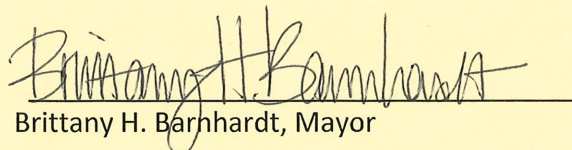 Brittany H. Barnhardt
Brittany H. Barnhardt, Mayor